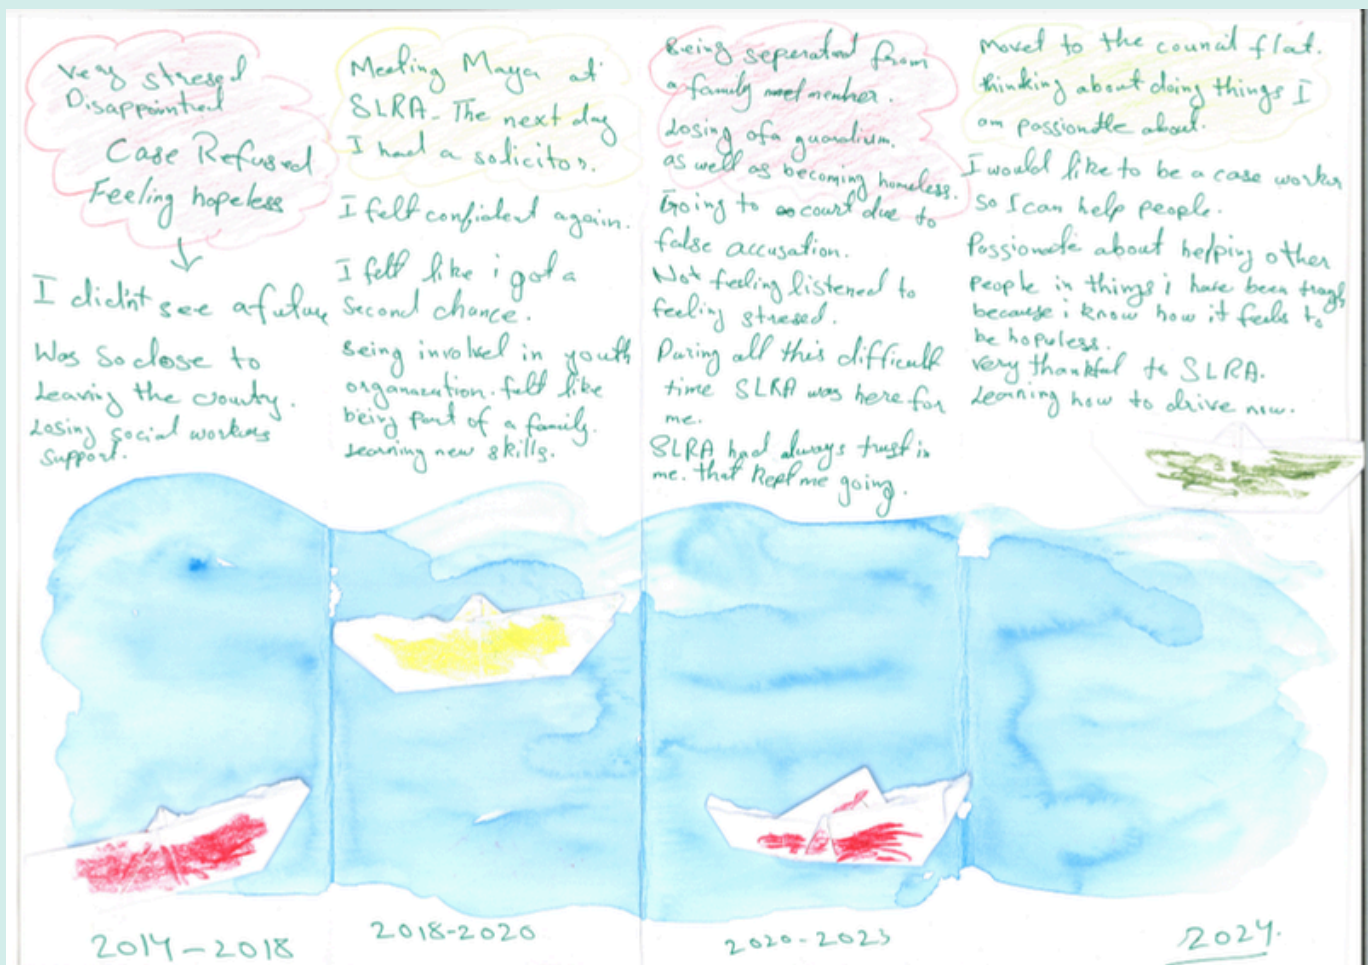 Very stresed
Disappointed
Case Refused
Feeling hopeless
I didn't see a future
Was So close to
Leaving the county.
Losing social workers
support.
2014-2018
Meeting Maya at
SLRA. The next day
I had a solicitor.
I felt confident again.
I felt like i got a
second chance.
Being involved in youth
organazation. felt like
being part of a family.
Learning new skills.
2018-2020
Being seperated from
a family member.
Losing of a guardium.
as well as becoming homeless.
Going to court due to
false accusation.
Not feeling listened to
feeling stresed.
During all this difficult
time SLRA was here for
me.
SLRA had always trust in
me. that kept me going.
2020-2023
Moved to the council flat.
thinking about doing things I
am passionate about.
I would like to be a case worker
so I can help people.
Passionate about helping other
people in things i have been
because i know how it feels to
be hopeless.
very thankful to SLRA.
Learning how to drive now.
2024.